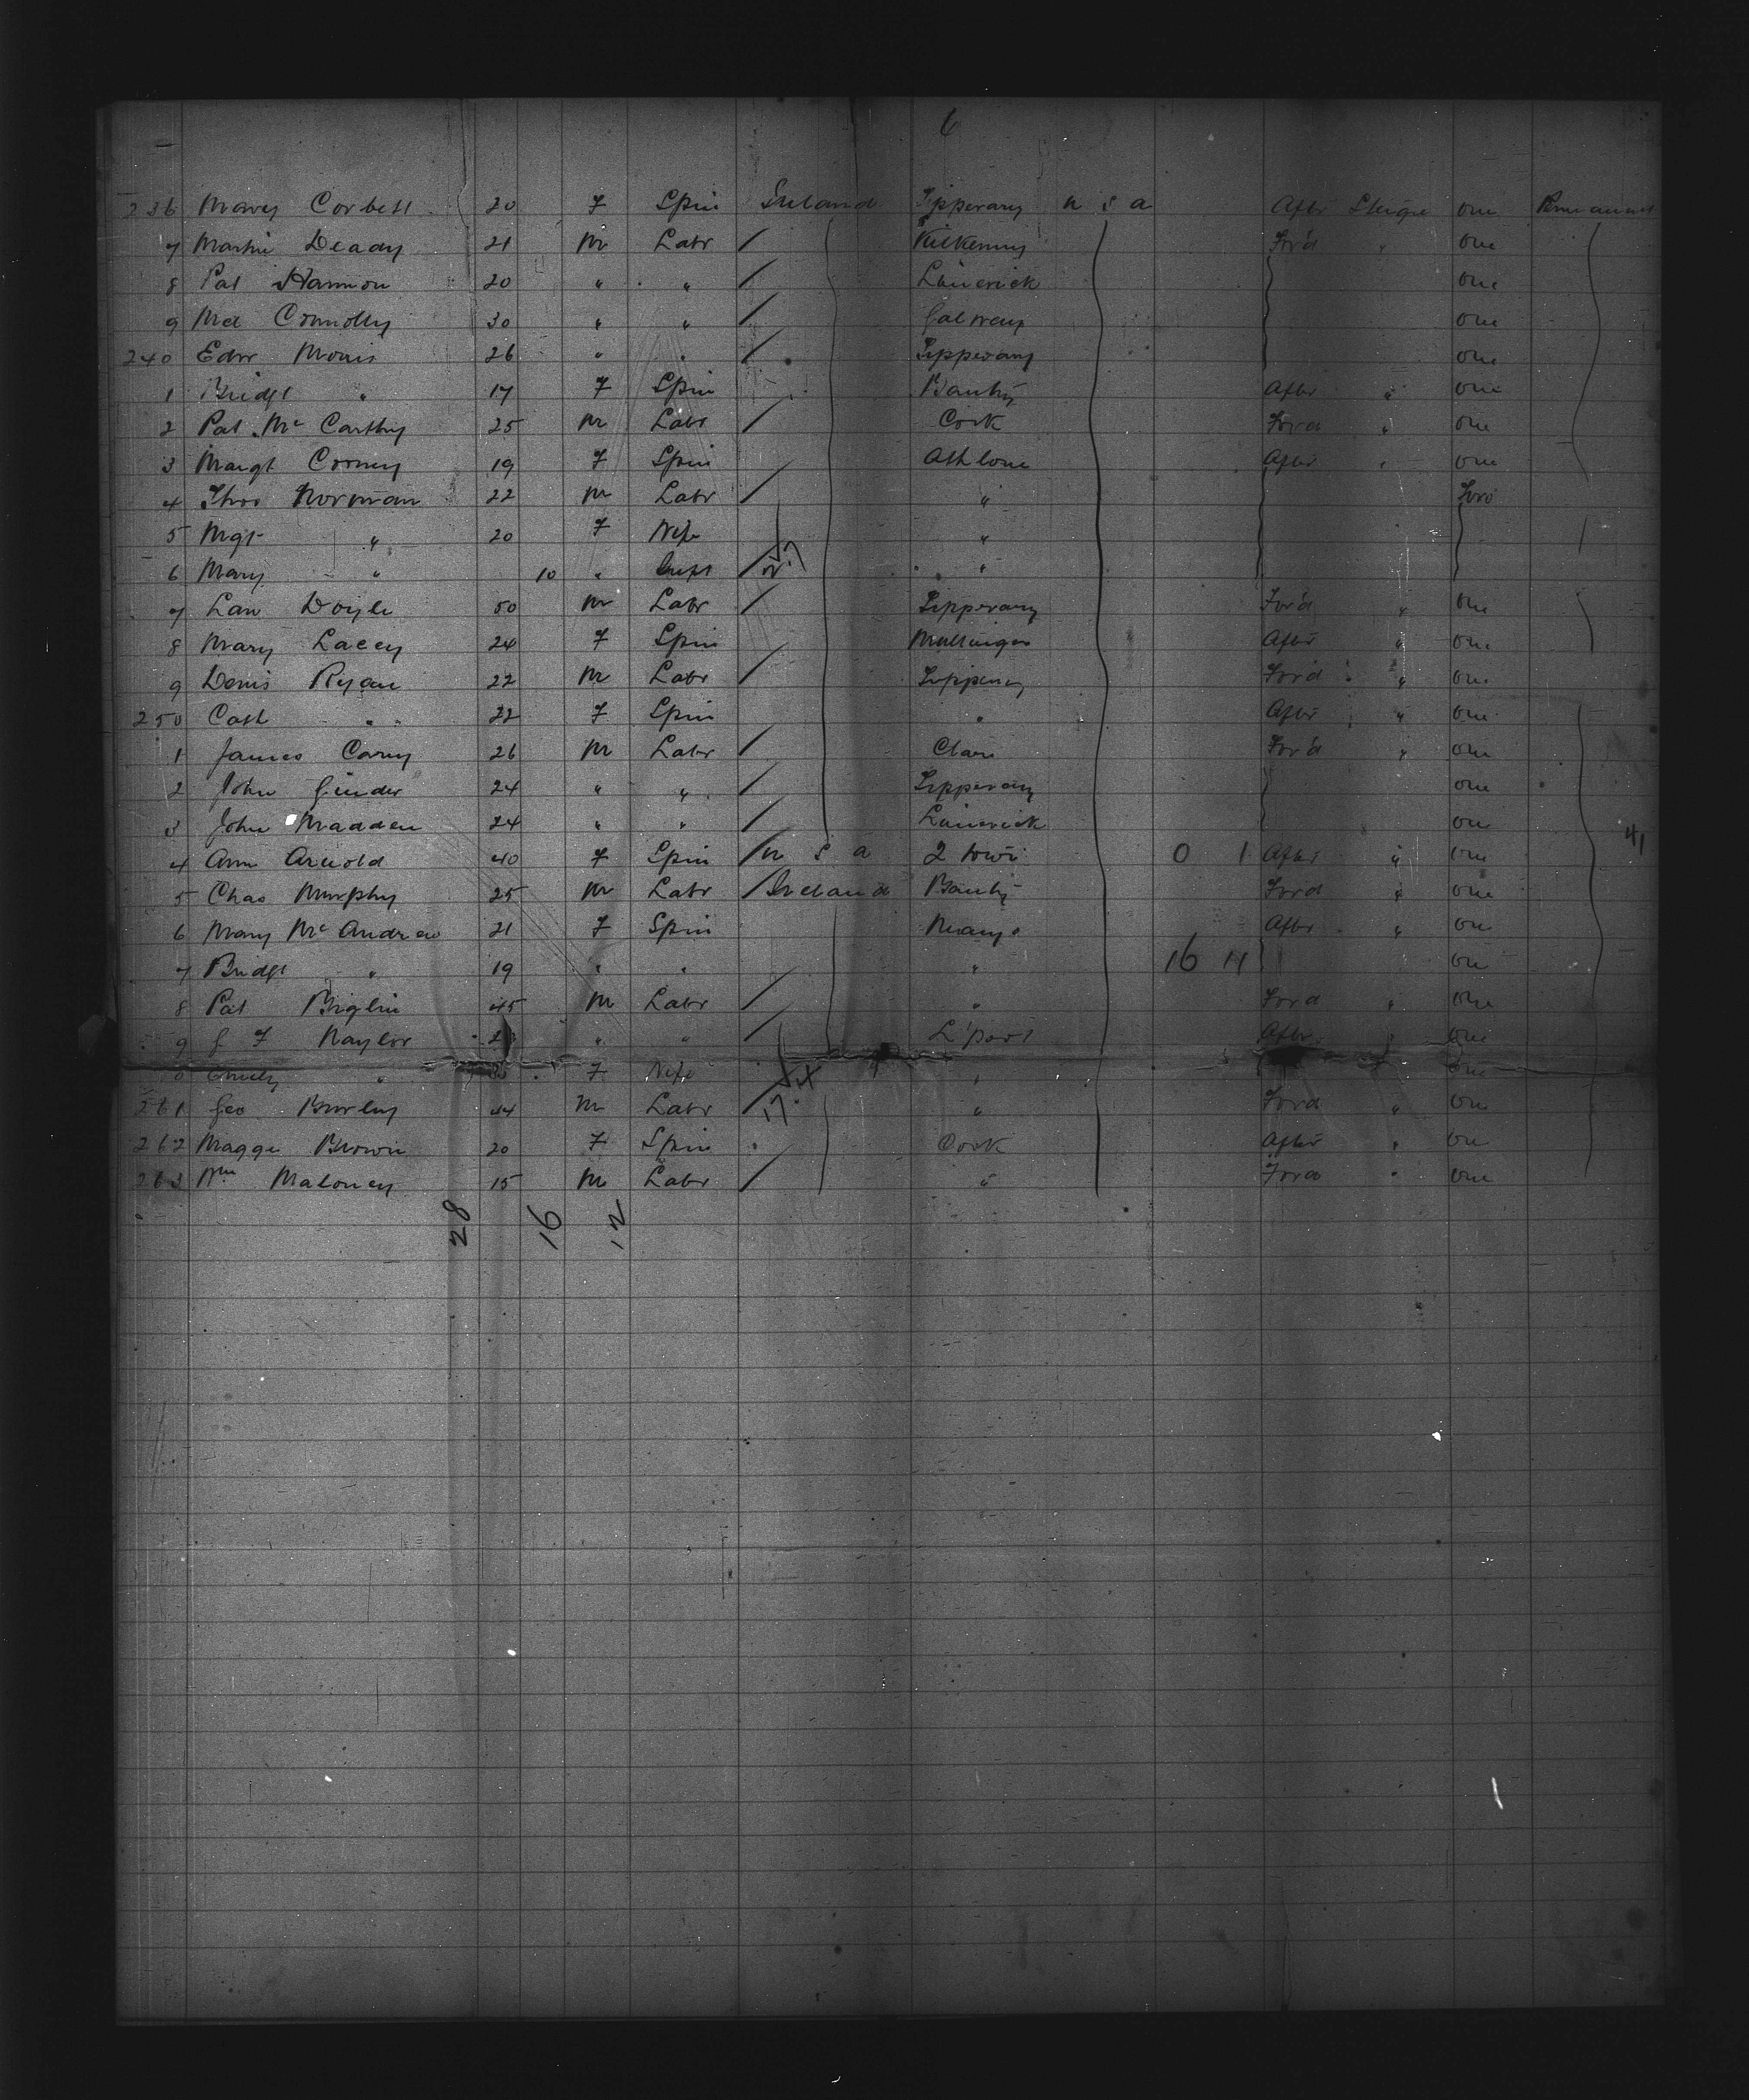 6
236 Mary Corbett 20 F Spin Ireland Tipperary U S A Aftr Stuge one Permanent
7 Martin Deady 21 M Labr / Kilkenny For'd " one
8 Pat Hannon 20 " " / Limerick one
9 Mcl Connolly 30 " " / Galway one
240 Edw Morris 26 " " / Tipperary one
1 Bridgt " 17 F Spin Bantry Aftr " one
2 Pat Mc Carthy 25 M Labr / Cork Ford " one
3 Margt Corney 19 F Spin Athlone Aftr " one
4 Thos Norman 22 M Labr / "
5 Mgt " 20 F Wife "
6 Mary " 10 " Inft / "
7 Law Doyle 50 M Labr / Tipperary For'd " one
8 Mary Lacey 24 F Spin Mullingar Aftr " one
9 Denis Ryan 22 M Labr / Tipperary For'd " one
250 Cath " 22 F Spin " Aftr " one
1 James Carey 26 M Labr / Clare For'd " one
2 John 24 " " / Tipperary one
3 John Madden 24 " " / Limerick one
41
4 Ann Arnold 40 F Spin / U S A 0 1 Aftr " one
5 Chas Murphy 25 M Labr / Ireland Bantry Ford " one
6 Mary Mc Andrew 21 F Spin Mayo Aftr " one
7 Bridgt " 19 " " " 16 11 one
8 Pat Biglin 45 M Labr / " Ford " one
9 G F Naylor " " / L'pool Aftr " one
0 Emily " F Wife " one
261 Geo Burley 44 M Labr / 17 " Ford " one
262 Maggie Brown 20 F Spin Cork Aftr " one
263 Wm Maloney 15 M Labr / " Ford " one
28 16 12